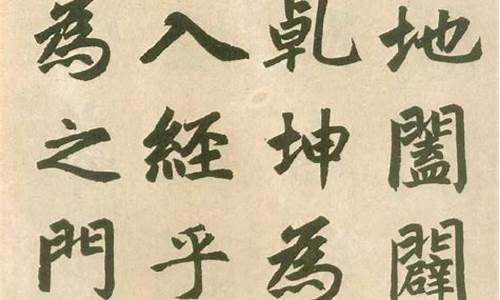 地闔闢
乾坤為
入經乎
為之門